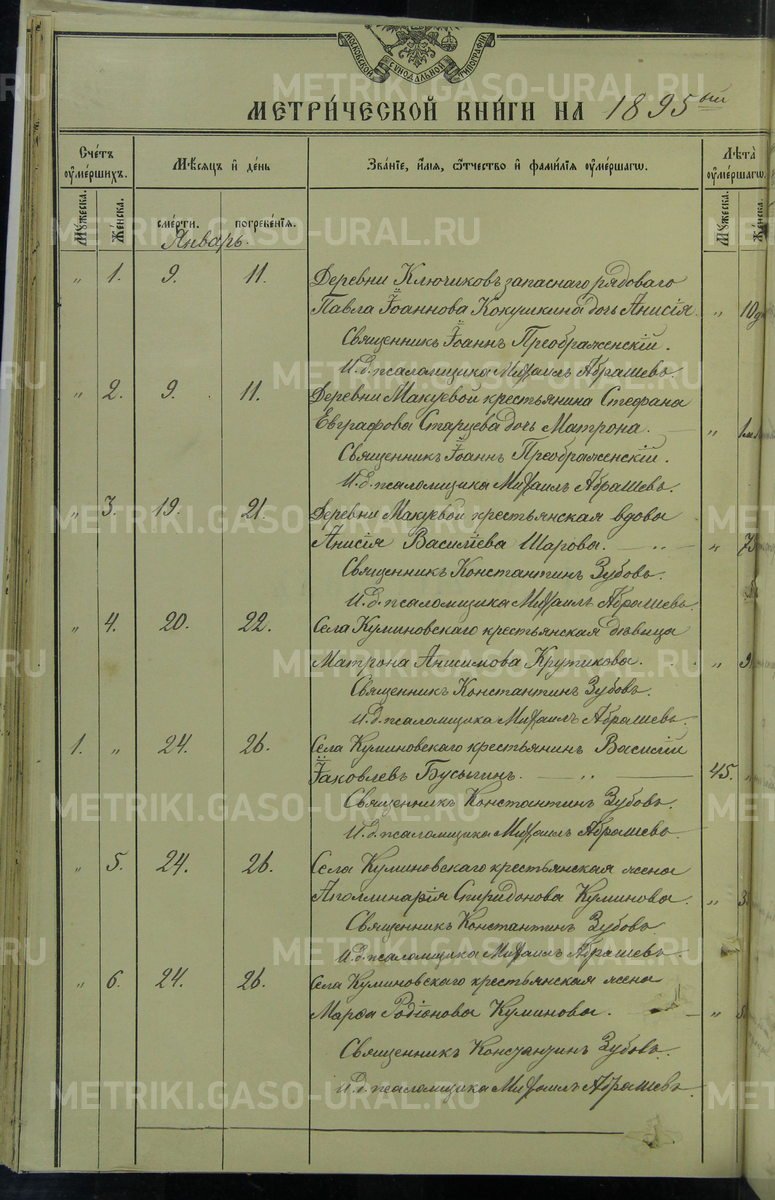 МОСКОВСКОЙ СѴНОДАЛЬНОЙ ТИПОГРАФІИ
МЕТРИ́ЧЕСКОЙ КНИ́ГИ НА 1895ый
Счетъ ᲂумершихъ.
Мѣсяцъ и день
Званіе, имя, ѻтчество и фамилія ᲂумершагѡ.
Лѣта ᲂумершагѡ.
Мужеска. Женска. смерти. погребенія. Мужеска. Женска.
Январь.
" 1. 9. 11. Деревни Ключиковъ запаснаго рядоваго
Павла Іоаннова Кокушкина дочь Анисія. " 10
Священникъ Іоаннъ Преображенскій.
И. д. псаломщика Михаилъ Абрашевъ
" 2. 9. 11. Деревни Макуевой крестьянина Стефана
Евграфова Старцева дочь Матрона. "
Священникъ Іоаннъ Преображенскій.
И. д. псаломщика Михаилъ Абрашевъ.
" 3. 19. 21. Деревни Макуевой крестьянская вдова
Анисія Василіева Шарова. "
Священникъ Константинъ Зубовъ.
И. д. псаломщика Михаилъ Абрашевъ.
" 4. 20. 22. Села Куминовскаго крестьянская дѣвица
Матрона Анисимова Крутикова. "
Священникъ Константинъ Зубовъ.
И. д. псаломщика Михаилъ Абрашевъ.
1. " 24. 26. Села Куминовскаго крестьянинъ Василій
Іаковлевъ Бусыгинъ. " 45.
Священникъ Константинъ Зубовъ.
И. д. псаломщика Михаилъ Абрашевъ.
" 5. 24. 26. Села Куминовскаго крестьянская жена
Аполлинарія Спиридонова Куминова. "
Священникъ Константинъ Зубовъ
И. д. псаломщика Михаилъ Абрашевъ.
" 6. 24. 26. Села Куминовскаго крестьянская жена
Марѳа Родіонова Куминова. "
Священникъ Константинъ Зубовъ.
И. д. псаломщика Михаилъ Абрашевъ.
METRIKI.GASO-URAL.RU